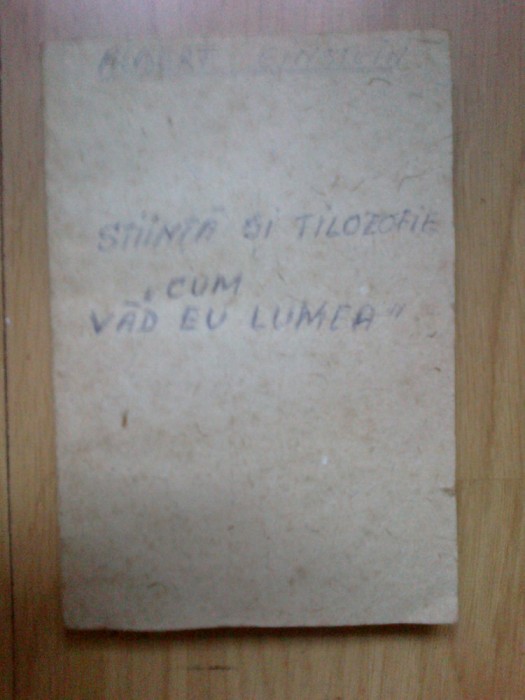 ALBERT EINSTEIN
STIINȚĂ ȘI FILOZOFIE
„CUM
VĂD EU LUMEA"